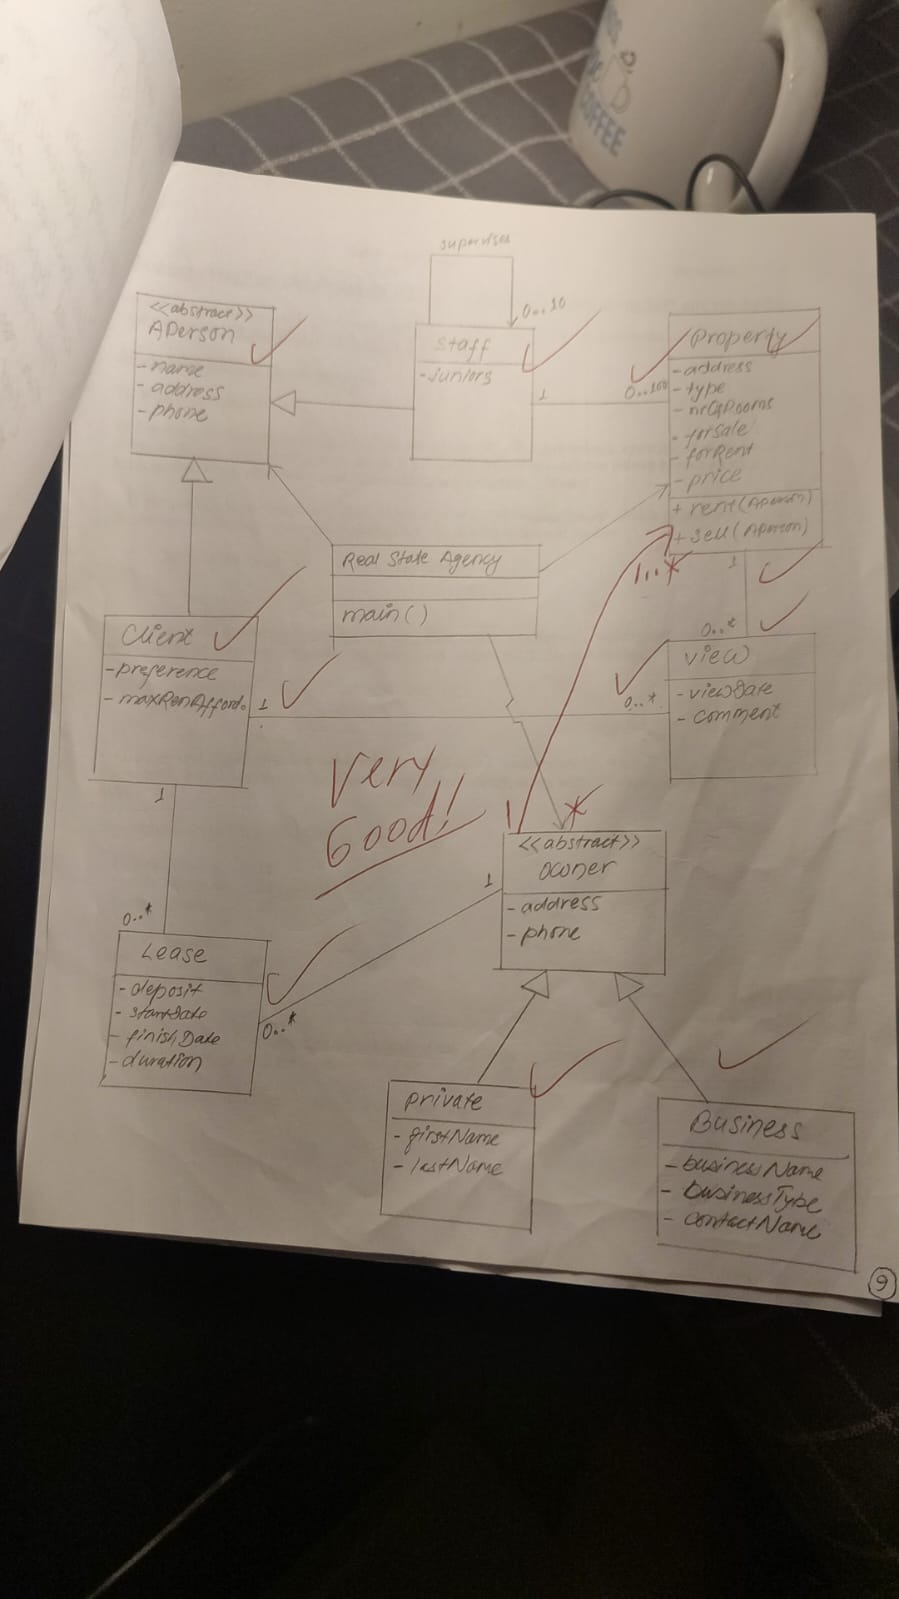 COFFEE
supervises
0..10
<<abstract>>
APerson
-name
-address
-phone
Staff
-juniors
1
0..100
Property
-address
-type
-nrOfRooms
-forSale
-forRent
-price
+rent(APerson)
+sell(APerson)
1..*
1
Real State Agency
main()
Client
-preference
-maxRenAfford.
1
0..*
0..*
View
-viewDate
-comment
1
Very
Good!
1
*
<<abstract>>
Owner
-address
-phone
1
0..*
Lease
-deposit
-startDate
-finishDate
-duration
0..*
Private
-firstName
-lastName
Business
-businessName
-businessType
-contactName
9